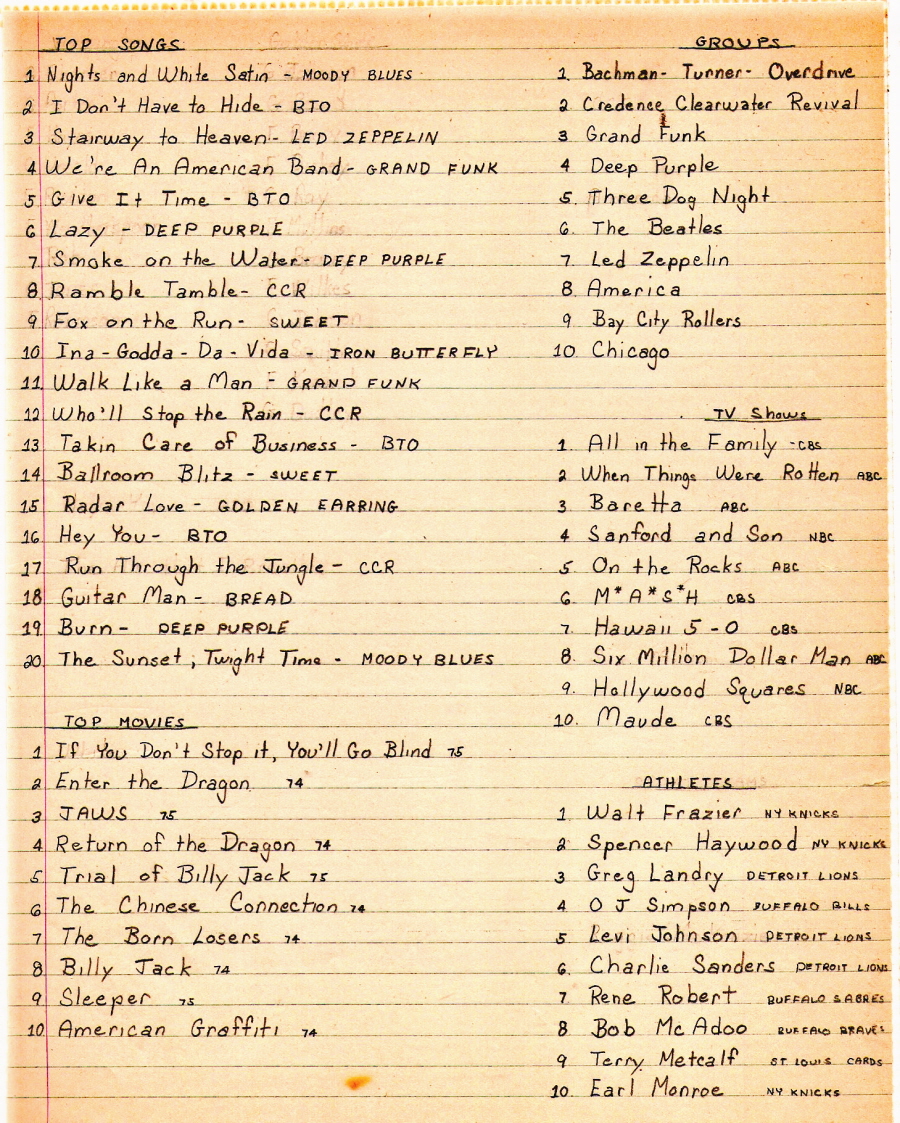 TOP SONGS
1 Nights and White Satin - MOODY BLUES
2 I Don't Have to Hide - BTO
3 Stairway to Heaven - LED ZEPPELIN
4 We're An American Band - GRAND FUNK
5 Give It Time - BTO
6 Lazy - DEEP PURPLE
7 Smoke on the Water - DEEP PURPLE
8 Ramble Tamble - CCR
9 Fox on the Run - SWEET
10 Ina-Godda-Da-Vida - IRON BUTTERFLY
11 Walk Like a Man - GRAND FUNK
12 Who'll Stop the Rain - CCR
13 Takin Care of Business - BTO
14 Ballroom Blitz - SWEET
15 Radar Love - GOLDEN EARRING
16 Hey You - BTO
17 Run Through the Jungle - CCR
18 Guitar Man - BREAD
19 Burn - DEEP PURPLE
20. The Sunset; Twight Time - MOODY BLUES
TOP MOVIES
1 If You Don't Stop it, You'll Go Blind 75
2 Enter the Dragon 74
3 JAWS 75
4 Return of the Dragon 74
5 Trial of Billy Jack 75
6 The Chinese Connection 74
7 The Born Losers 74
8 Billy Jack 74
9 Sleeper 75
10 American Graffiti 74
GROUPS
1. Bachman-Turner-Overdrive
2 Credence Clearwater Revival
3 Grand Funk
4 Deep Purple
5. Three Dog Night
6. The Beatles
7. Led Zeppelin
8. America
9 Bay City Rollers
10. Chicago
TV Shows
1. All in the Family - CBS
2 When Things Were Rotten ABC
3. Baretta ABC
4 Sanford and Son NBC
5. On the Rocks ABC
6 M*A*S*H CBS
7. Hawaii 5-0 CBS
8. Six Million Dollar Man ABC
9. Hollywood Squares NBC
10. Maude CBS
ATHLETES
1 Walt Frazier NY KNICKS
2 Spencer Haywood NY KNICKS
3 Greg Landry DETROIT LIONS
4 O J Simpson BUFFALO BILLS
5 Levi Johnson DETROIT LIONS
6. Charlie Sanders DETROIT LIONS
7 Rene Robert BUFFALO SABRES
8 Bob McAdoo BUFFALO BRAVES
9 Terry Metcalf ST. LOUIS CARDS
10. Earl Monroe NY KNICKS